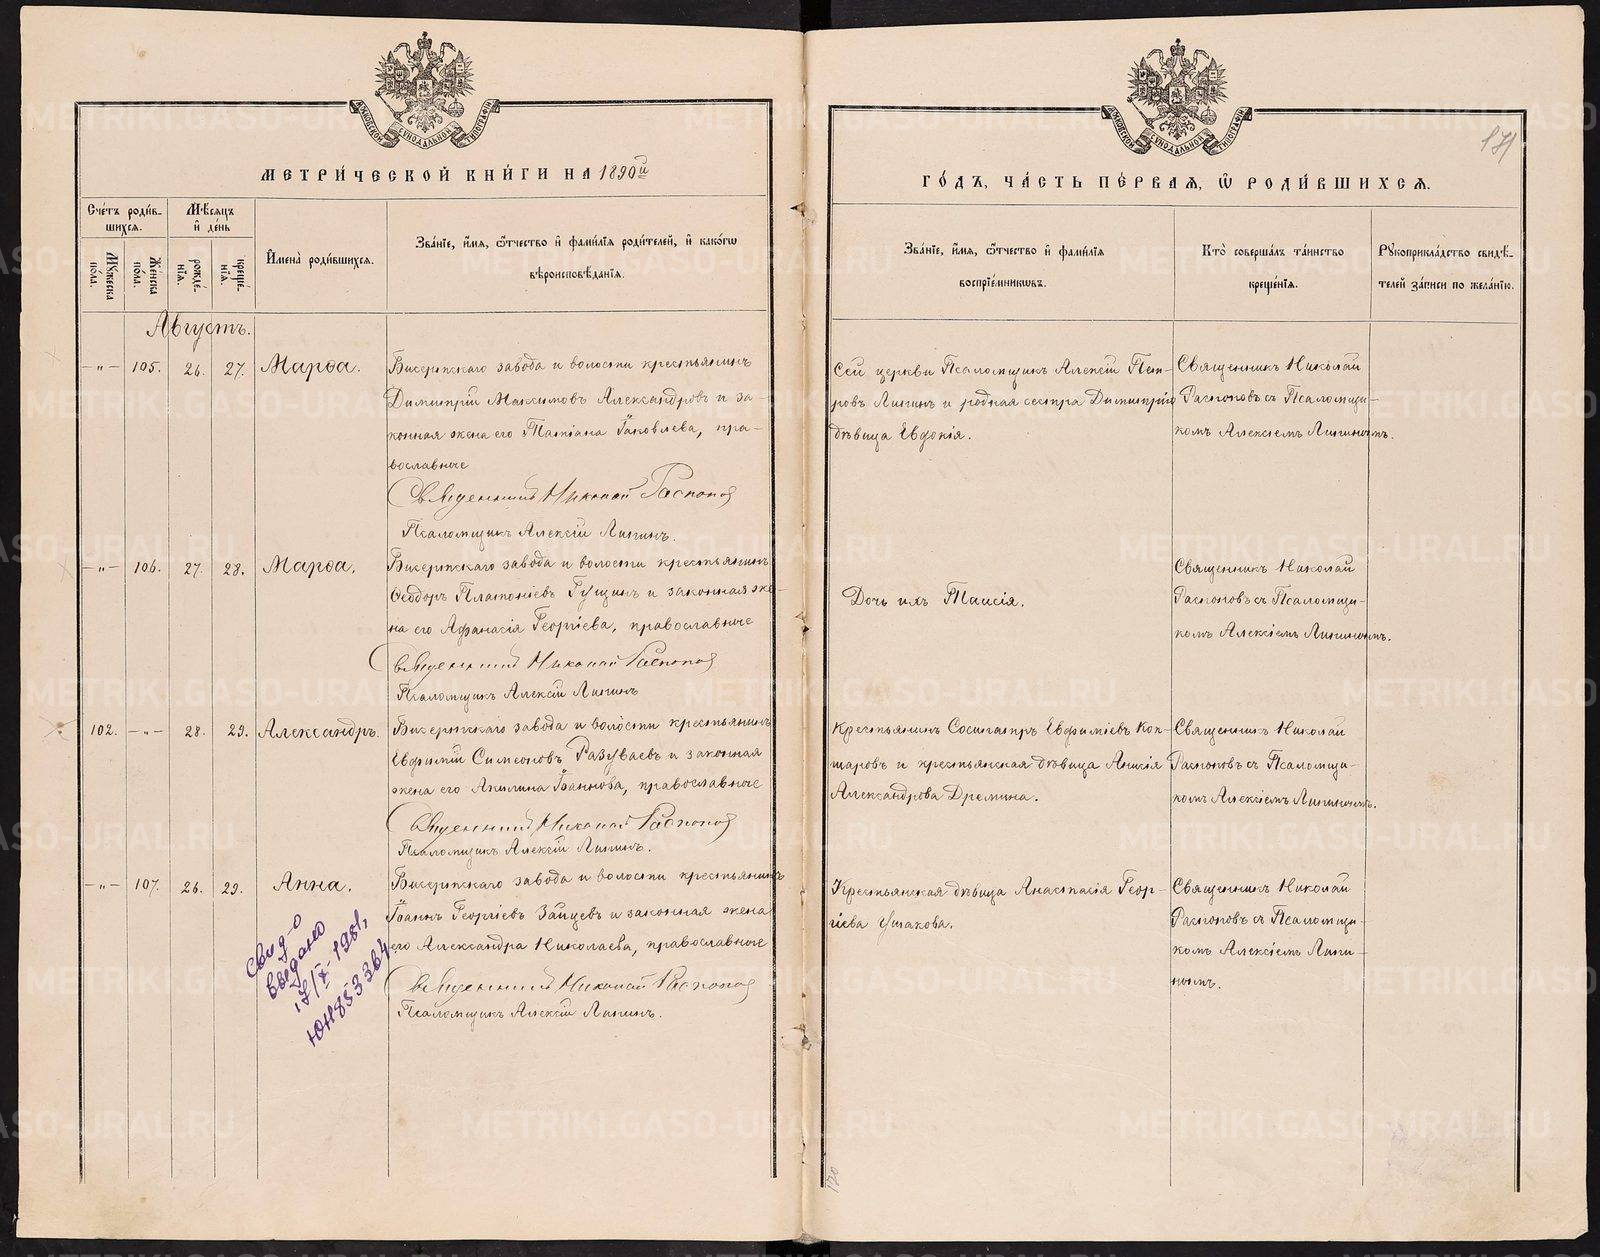 МОСКОВСКОЙ СѴНОДАЛЬНОЙ ТИПОГРАФІИ
МЕТРИ́ЧЕСКОЙ КНИ́ГИ НА 1890й
Сче́тъ роди́в-
шихся.
Му́жеска
по́ла.
Же́нска
по́ла.
Мѣ́сяцъ
и҆ де́нь
рожде́-
нїя.
креще́-
нїя.
И҆мена̀ роди́вшихся.
Зва́нїе, и҆́мя, ѻ҆́тчество и҆ фами́лїя роди́телей, и҆ како́гѡ
вѣроисповѣ́данїя.
Августъ.
—"— 105. 26. 27. Марѳа.
Бисертскаго завода и волости крестьянинъ
Димитрій Максимовъ Александровъ и за-
конная жена его Татіана Іаковлева, пра-
вославные
Священникъ Николай Распоповъ
Псаломщикъ Алексій Липинъ.
—"— 106. 27. 28. Марѳа.
Бисертскаго завода и волости крестьянинъ
Ѳеодоръ Платоніевъ Гущинъ и законная же-
на его Афанасія Георгіева, православные
Священникъ Николай Распоповъ
Псаломщикъ Алексій Липинъ
102. —"— 28. 29. Александръ.
Бисертскаго завода и волости крестьянинъ
Евфимій Симеоновъ Разуваевъ и законная
жена его Апилина Іоаннова, православные
Священникъ Николай Распоповъ
Псаломщикъ Алексій Липинъ.
—"— 107. 26. 29. Анна.
Бисертскаго завода и волости крестьянинъ
Іоаннъ Георгіевъ Зайцевъ и законная жена
его Александра Николаева, православные
Священникъ Николай Распоповъ
Псаломщикъ Алексій Липинъ.
Свид-о
выдано
17/X-1981,
ЮН853364
МОСКОВСКОЙ СѴНОДАЛЬНОЙ ТИПОГРАФІИ
171
ГО́ДЪ, ЧА́СТЬ ПЕ́РВАЯ, Ѡ҆ РОДИ́ВШИХСЯ.
Зва́нїе, и҆́мя, ѻ҆́тчество и҆ фами́лїя
воспрїе́мникѡвъ.
Кто̀ соверша́лъ та́инство
креще́нїя.
Рꙋкоприкла́дство свидѣ́-
телей за́писи по жела́нїю.
Сей церкви Псаломщикъ Алексій Пет-
ровъ Липинъ и родная сестра Димитрія
дѣвица Евдокія.
Священникъ Николай
Распоповъ съ Псаломщи-
комъ Алексіемъ Липинымъ.
Дочь ихъ Таисія.
Священникъ Николай
Распоповъ съ Псаломщи-
комъ Алексіемъ Липинымъ.
Крестьянинъ Сосипатръ Евфиміевъ Коп-
таровъ и крестьянская дѣвица Анисія
Александрова Дремина.
Священникъ Николай
Распоповъ съ Псаломщи-
комъ Алексіемъ Липинымъ.
Крестьянская дѣвица Анастасія Геор-
гіева Ушакова.
Священникъ Николай
Распоповъ съ Псаломщи-
комъ Алексіемъ Липи-
нымъ.
170
METRIKI.GASO-URAL.RU